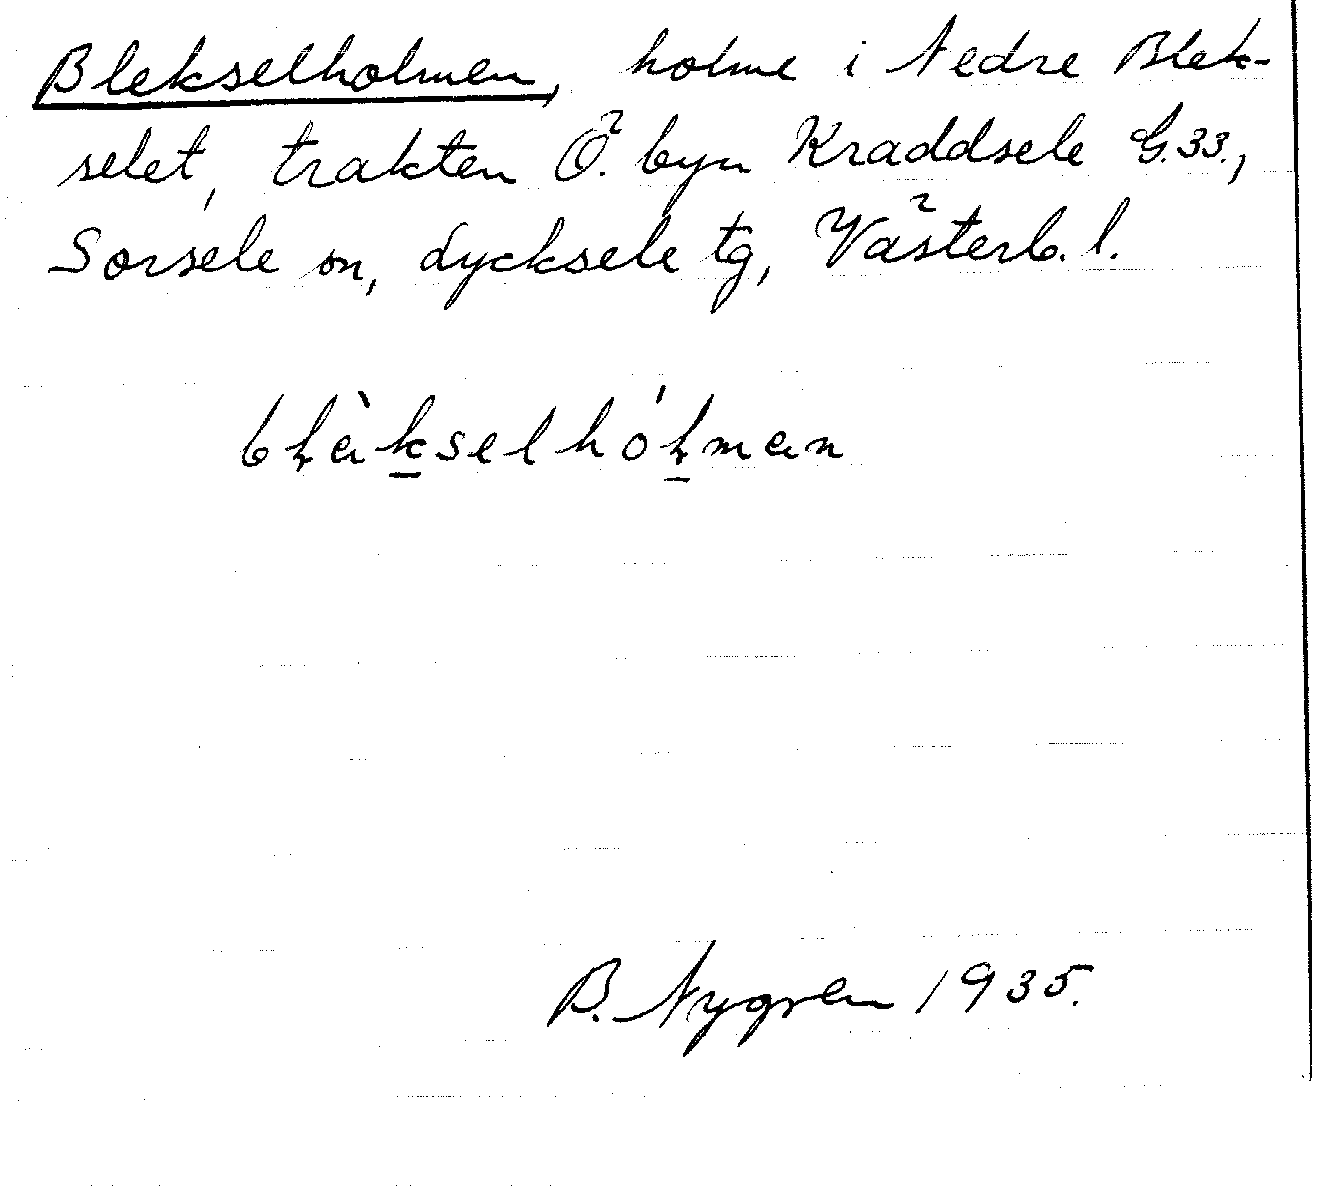 Blekselholmen, holme i Nedre Blek-
selet, trakten Ö. byn Kraddsele G.33.,
Sorsele sn, Lycksele tg, Västerb. l.
bḷèk̲selhóḷ̲men
B. Nygren 1935.